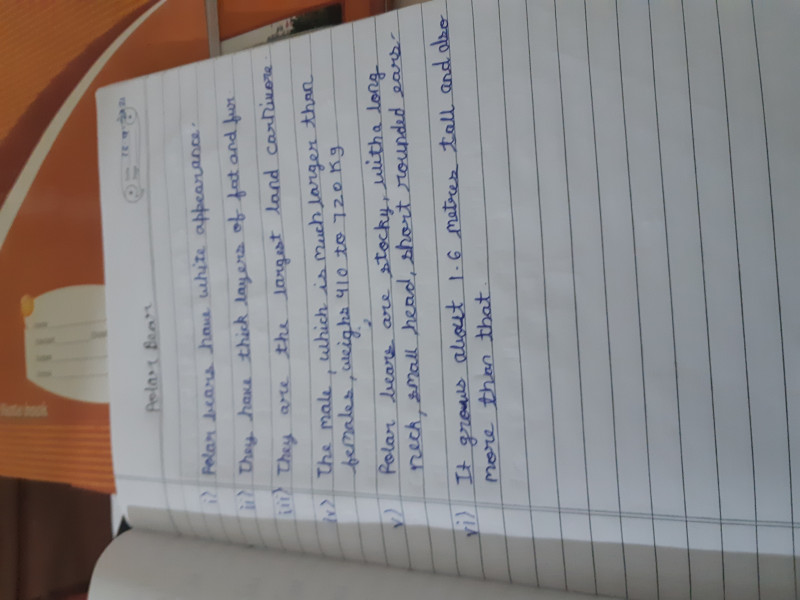 Polar Bear
i) Polar bears have white appearance.
ii) They have thick layers of fat and fur
iii) They are the largest land carnivore.
iv) The male, which is much larger than
females, weighs 410 to 720 Kg
v) Polar bears are stocky, with a long
neck, small head, short rounded ears.
vi) It grows about 1.6 metres tall and also
more than that.